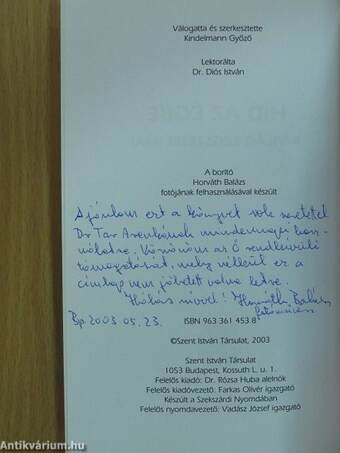 Válogatta és szerkesztette
Kindelmann Győző
Lektorálta
Dr. Diós István
A borító
Horváth Balázs
fotójának felhasználásával készült
Ajánlom ezt a könyvet sok szeretettel
Dr Tar mindennapi
Köszönöm az Ő rendkívüli
támogatását, mely nélkül ez a
címlap nem jöhetett volna létre.
Hálás szívvel! Horváth Balázs
Bp 2003.05.23.
ISBN 963 361 453 8
©Szent István Társulat, 2003
Szent István Társulat
1053 Budapest, Kossuth L. u. 1.
Felelős kiadó: Dr. Rózsa Huba alelnök
Felelős kiadóvezető: Farkas Olivér igazgató
Készült a Szekszárdi Nyomdában
Felelős nyomdavezető: Vadász József igazgató
Antikvárium.hu